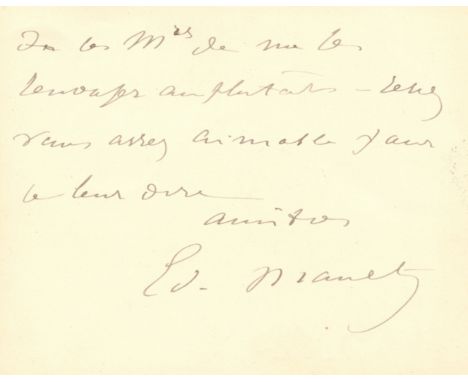 les M^rs de me les
renvoyer au plus tôt – serez
vous assez aimable pour
le leur dire
amitiés
Ed. Manet